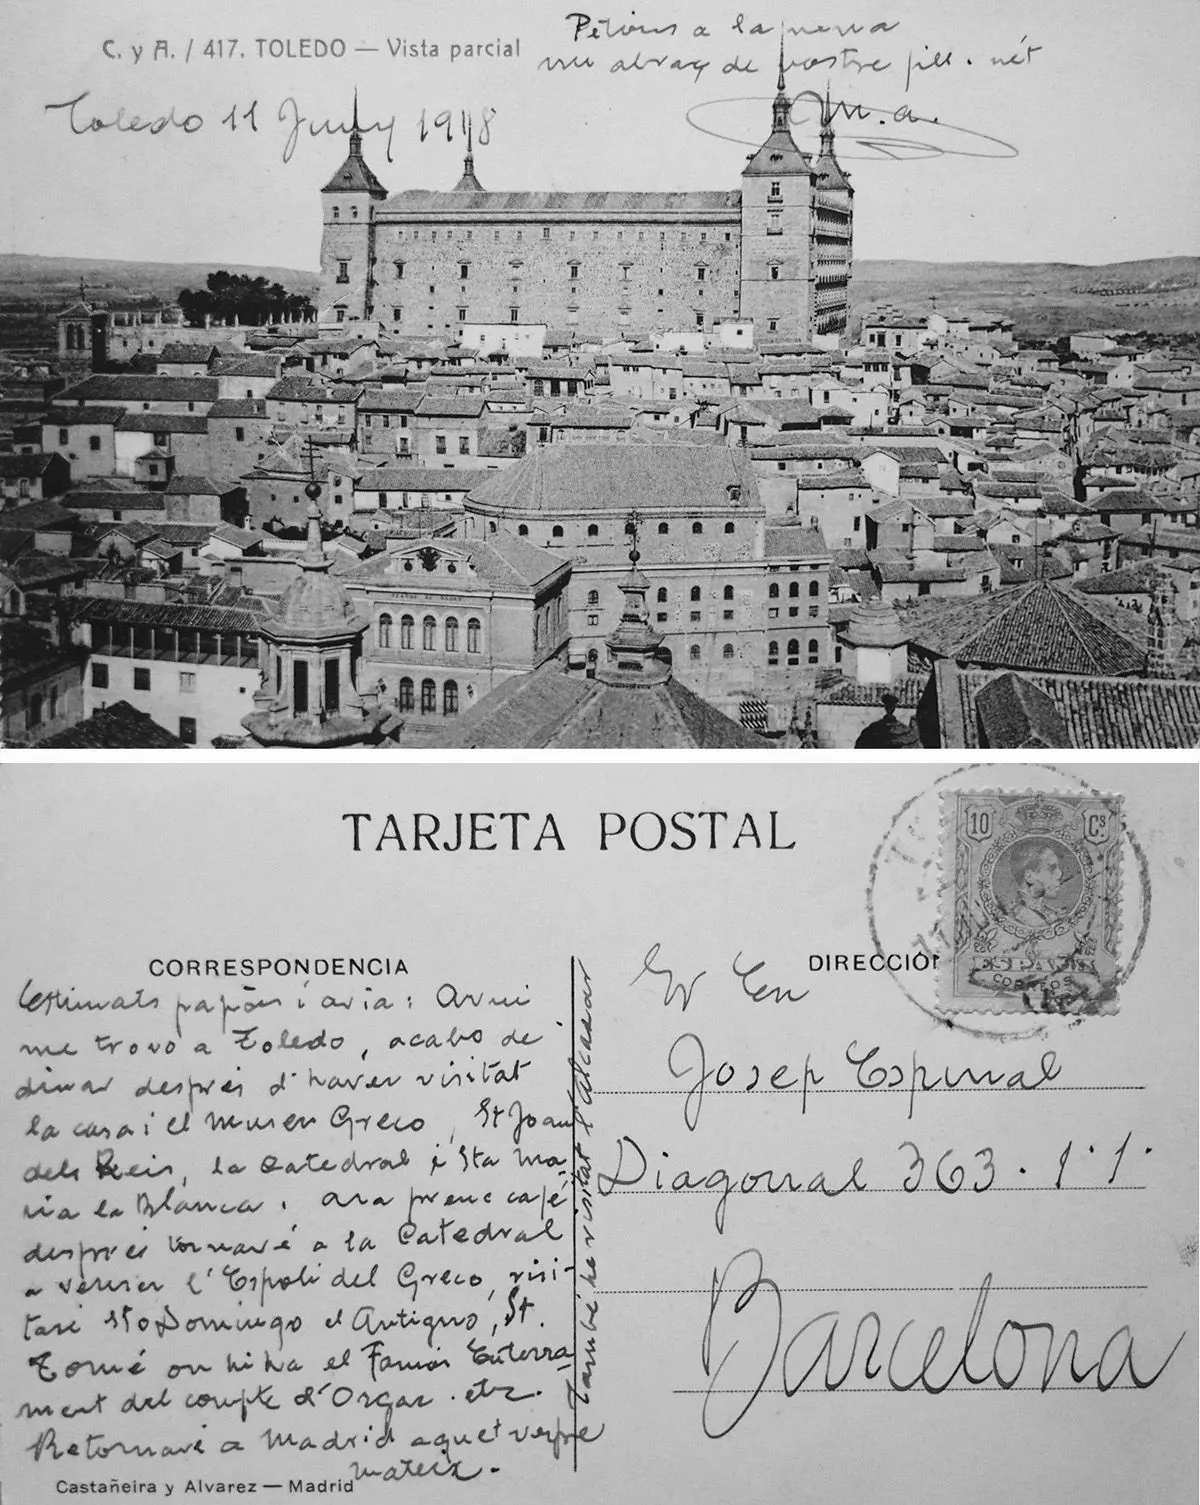 C. y A. / 417. TOLEDO — Vista parcial
Petons a la nena
un abraç de vostre fill. nét
M.A.
Toledo 11 Juny 1918
TEATRO DE ROJAS
TARJETA POSTAL
10 Cs.
ESPAÑA
CORREOS
CORRESPONDENCIA
DIRECCIÓN
Estimats papàs i avia: Avui
me trovo a Toledo, acabo de
dinar després d'haver visitat
la casa i el Museu Greco, St Joan
dels Reis, la Catedral i Sta Ma-
ria la Blanca. Ara prenc café
després tornaré a la Catedral
a veurer l'Espoli del Greco, visi-
taré Sto Domingo el Antiguo, St.
Tomé on hi ha el famós Enterra-
ment del compte d'Orgaz. etz.
Retornaré a Madrid aquet vespre
mateix.-
També he visitat l'alcasar
Sr En
Josep Espinal
Diagonal 363. 1. 1.
Barcelona
Castañeira y Alvarez — Madrid